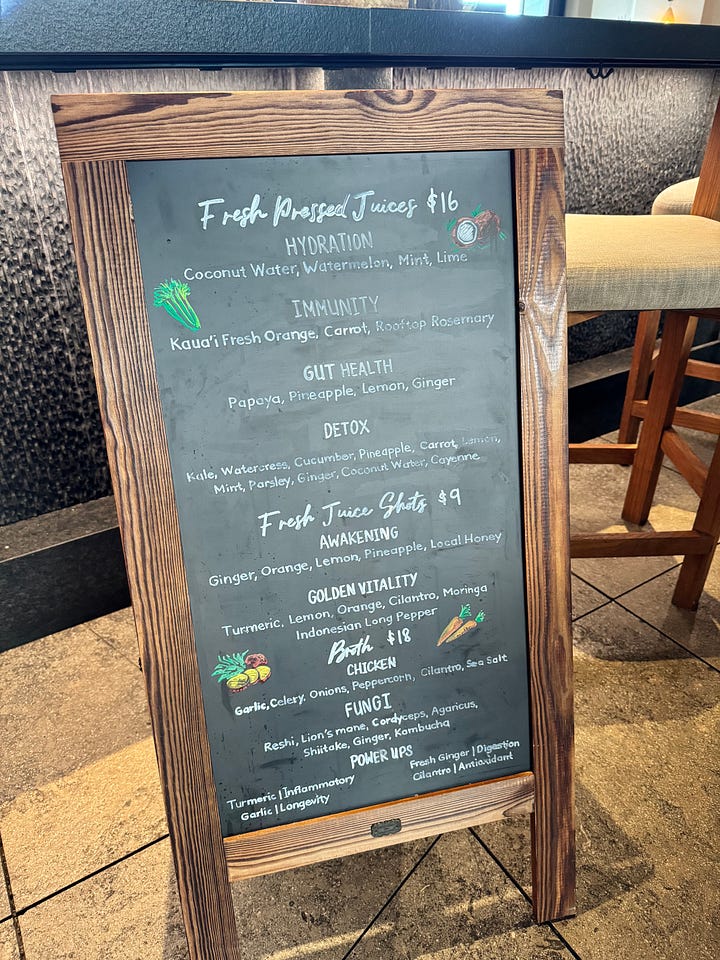 Fresh Pressed Juices $16
HYDRATION
Coconut Water, Watermelon, Mint, Lime
IMMUNITY
Kaua'i Fresh Orange, Carrot, Rooftop Rosemary
GUT HEALTH
Papaya, Pineapple, Lemon, Ginger
DETOX
Kale, Watercress, Cucumber, Pineapple, Carrot, Lemon,
Mint, Parsley, Ginger, Coconut Water, Cayenne
Fresh Juice Shots $9
AWAKENING
Ginger, Orange, Lemon, Pineapple, Local Honey
GOLDEN VITALITY
Turmeric, Lemon, Orange, Cilantro, Moringa
Indonesian Long Pepper
Broth $18
CHICKEN
Garlic, Celery, Onions, Peppercorn, Cilantro, Sea Salt
FUNGI
Reshi, Lion's mane, Cordyceps, Agaricus,
Shiitake, Ginger, Kombucha
POWER UPS
Turmeric | Inflammatory
Garlic | Longevity
Fresh Ginger | Digestion
Cilantro | Antioxidant